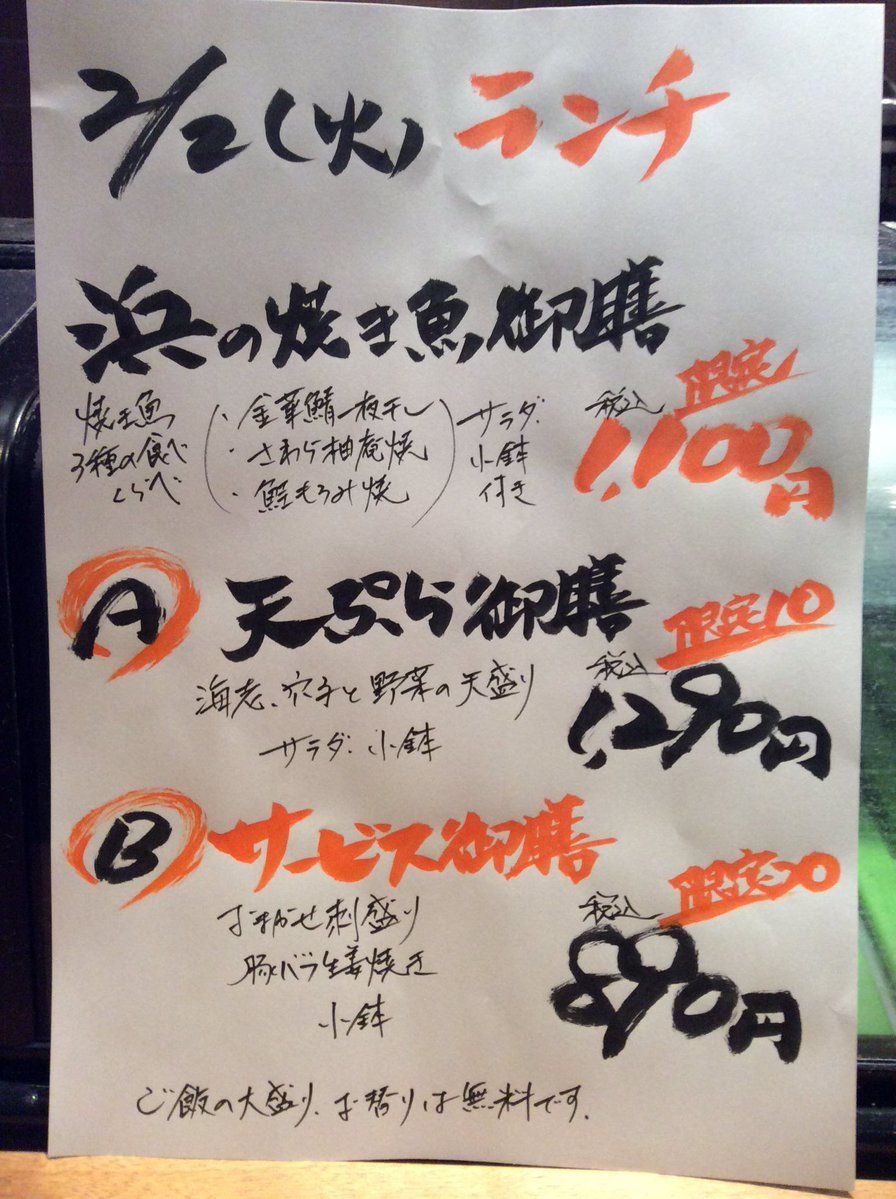 2/2(火) ランチ
浜の焼き魚御膳
限定
焼き魚
3種の食べ
くらべ
・金華鯖一夜干し
・さわら柚庵焼
・鮭もろみ焼
サラダ.
小鉢
付き
税込
1,100円
A 天ぷら御膳
限定10
海老、穴子と野菜の天盛り
サラダ. 小鉢
税込
1,290円
B サービス御膳
限定20
おまかせ刺盛り
豚バラ生姜焼き
小鉢
税込
890円
ご飯の大盛り、お替りは無料です.